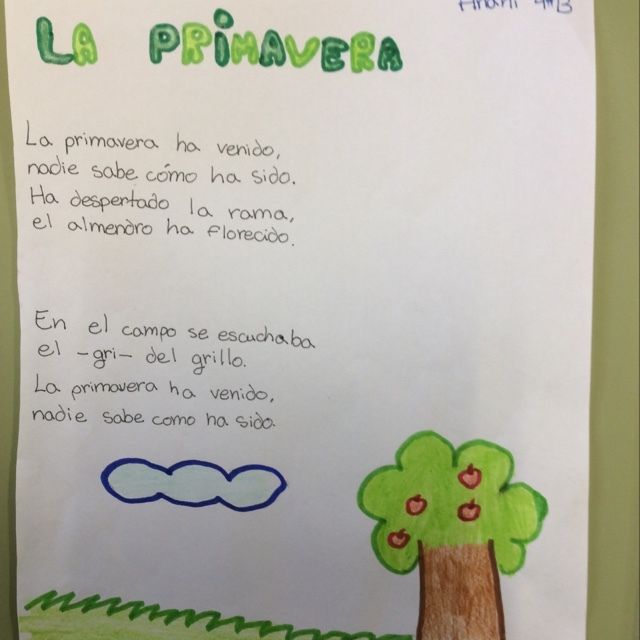 4ºB
LA PRIMAVERA
La primavera ha venido,
nadie sabe cómo ha sido.
Ha despentado la rama,
el almendro ha florecido.
En el campo se escuchaba
el -gri- del grillo.
La primavera ha venido,
nadie sabe como ha sido.